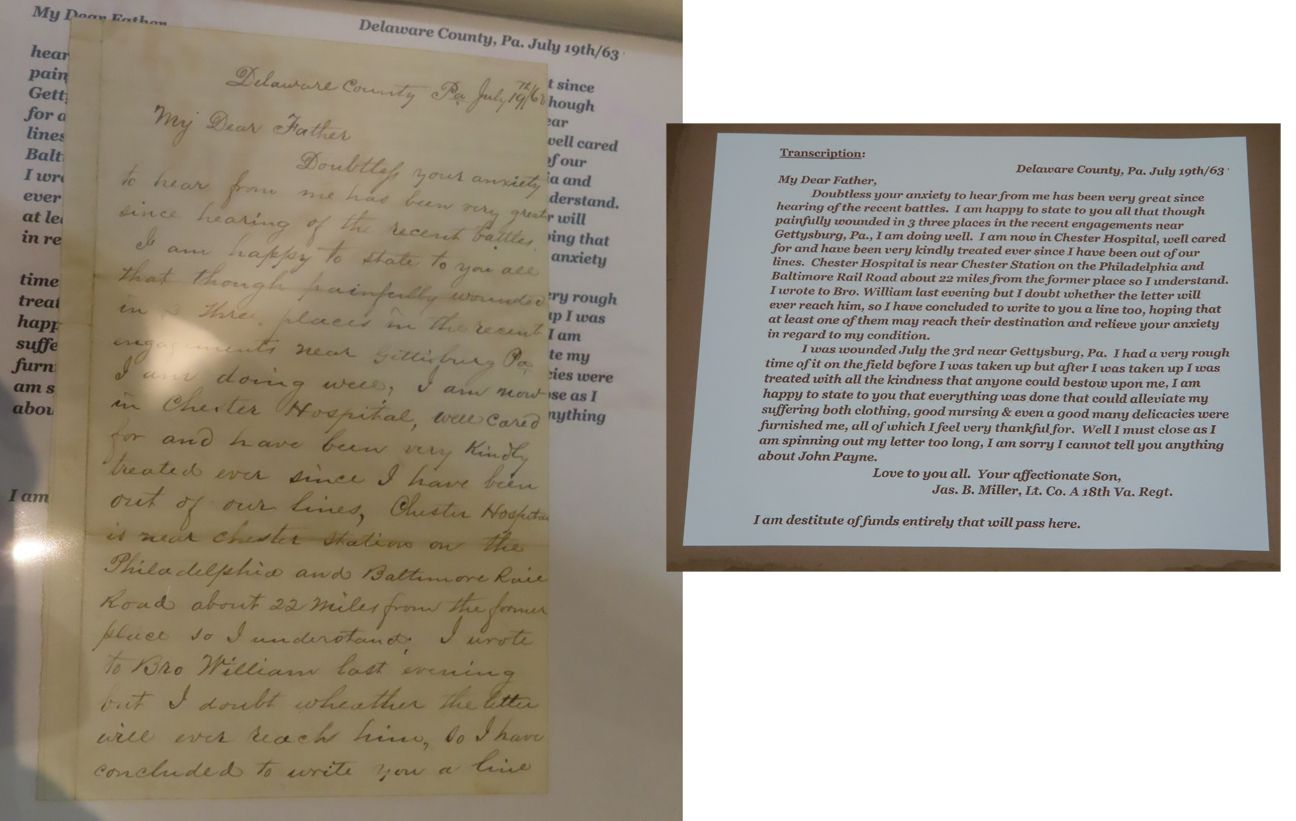 My Dear Father
Delaware County, Pa. July 19th/63
hear
pain
Gett
for a
lines
Balt
I wro
ever
at lea
in re
time
treat
happ
suffe
furn
am s
abou
I am
t since
hough
ear
well cared
of our
ia and
derstand.
r will
ping that
anxiety
ery rough
up I was
I am
te my
cies were
ose as I
nything
Delaware County Pa July 19th/63
My Dear Father
Doubtless your anxiety
to hear from me has been very great
since hearing of the recent battles.
I am happy to state to you all
that though painfully wounded
in 3 three places in the recent
engagements near Gittisburg Pa,
I am doing well, I am now
in Chester Hospital, well cared
for and have been very Kindly
treated ever since I have been
out of our lines, Chester Hospital
is near Chester Station on the
Philadelphia and Baltimore Rail
Road about 22 miles from the former
place so I understand. I wrote
to Bro William last evening
but I doubt wheather the letter
will ever reach him, so I have
concluded to write you a line
Transcription:
Delaware County, Pa. July 19th/63
My Dear Father,
Doubtless your anxiety to hear from me has been very great since
hearing of the recent battles. I am happy to state to you all that though
painfully wounded in 3 three places in the recent engagements near
Gettysburg, Pa., I am doing well. I am now in Chester Hospital, well cared
for and have been very kindly treated ever since I have been out of our
lines. Chester Hospital is near Chester Station on the Philadelphia and
Baltimore Rail Road about 22 miles from the former place so I understand.
I wrote to Bro. William last evening but I doubt whether the letter will
ever reach him, so I have concluded to write to you a line too, hoping that
at least one of them may reach their destination and relieve your anxiety
in regard to my condition.
I was wounded July the 3rd near Gettysburg, Pa. I had a very rough
time of it on the field before I was taken up but after I was taken up I was
treated with all the kindness that anyone could bestow upon me, I am
happy to state to you that everything was done that could alleviate my
suffering both clothing, good nursing & even a good many delicacies were
furnished me, all of which I feel very thankful for. Well I must close as I
am spinning out my letter too long, I am sorry I cannot tell you anything
about John Payne.
Love to you all. Your affectionate Son,
Jas. B. Miller, Lt. Co. A 18th Va. Regt.
I am destitute of funds entirely that will pass here.